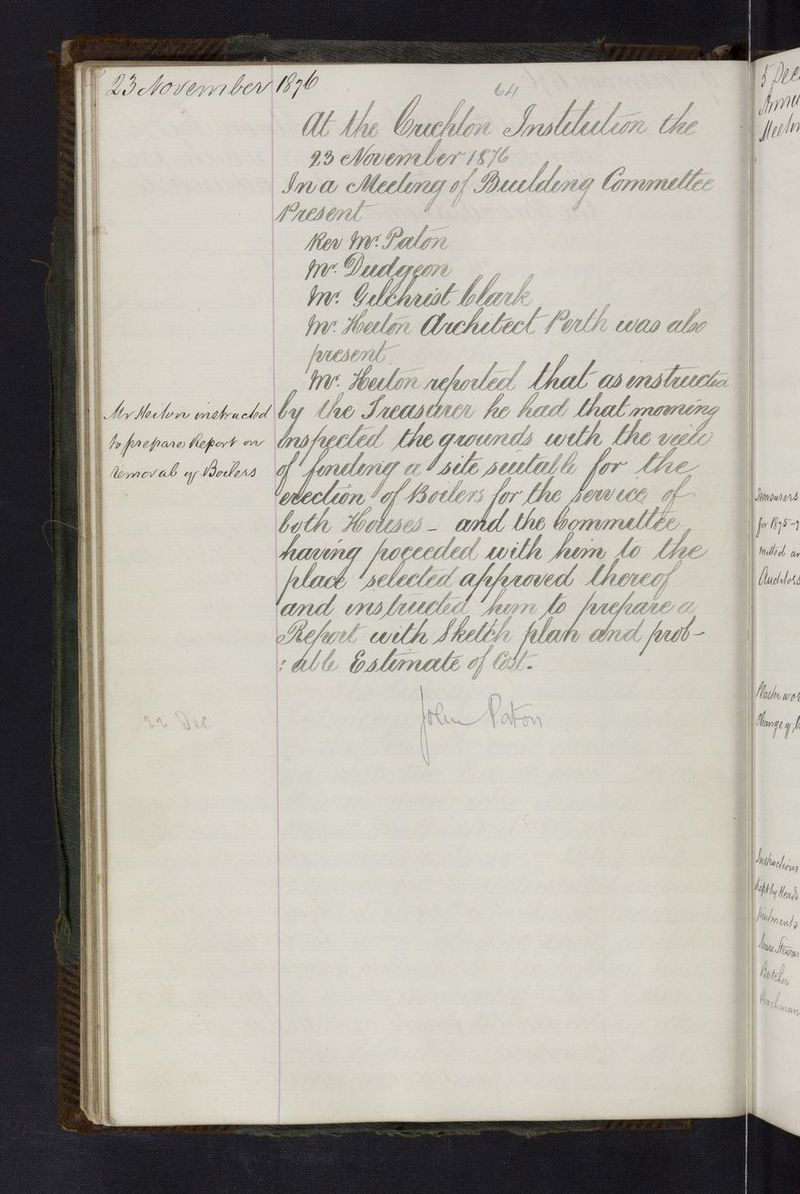 23 November 1876
64
At the Crichton Institution the
23 November 1876
In a Meeting of Building Committee
Present
Rev Mr. Paton
Mr. Dudgeon
Mr. Gilchrist Clark
Mr. Heiton Architect Perth was also
present.
Mr. Heiton reported that as instructed
Mr Heiton instructed
to prepare Report on
removal of Boilers
by the Treasurer he had that morning
inspected the grounds with the view
of finding a site suitable for the
erection of Boilers for the service of
both Houses - and the Committee
having poceeded with him to the
place selected approved thereof
and instructed him to prepare a
Report with Sketch plan and prob-
:able Estimate of Cost.
John Paton
22 Dec
5 Dec
Annu
Meetin
Treasurers
for 1875-7
mitted an
Auditors
Plaster wor
Change of
Instructions
kept by Heads
partments
House Stewar
Butcher
Coachman